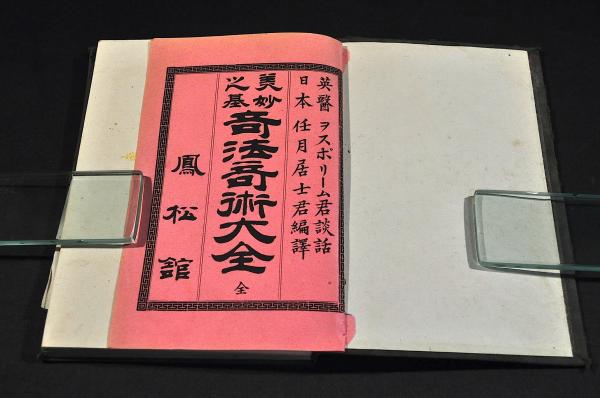 英醫ヲスポリーム君談話
日本任月居士君編譯
美妙之基
奇法奇術大全 全
鳳松館